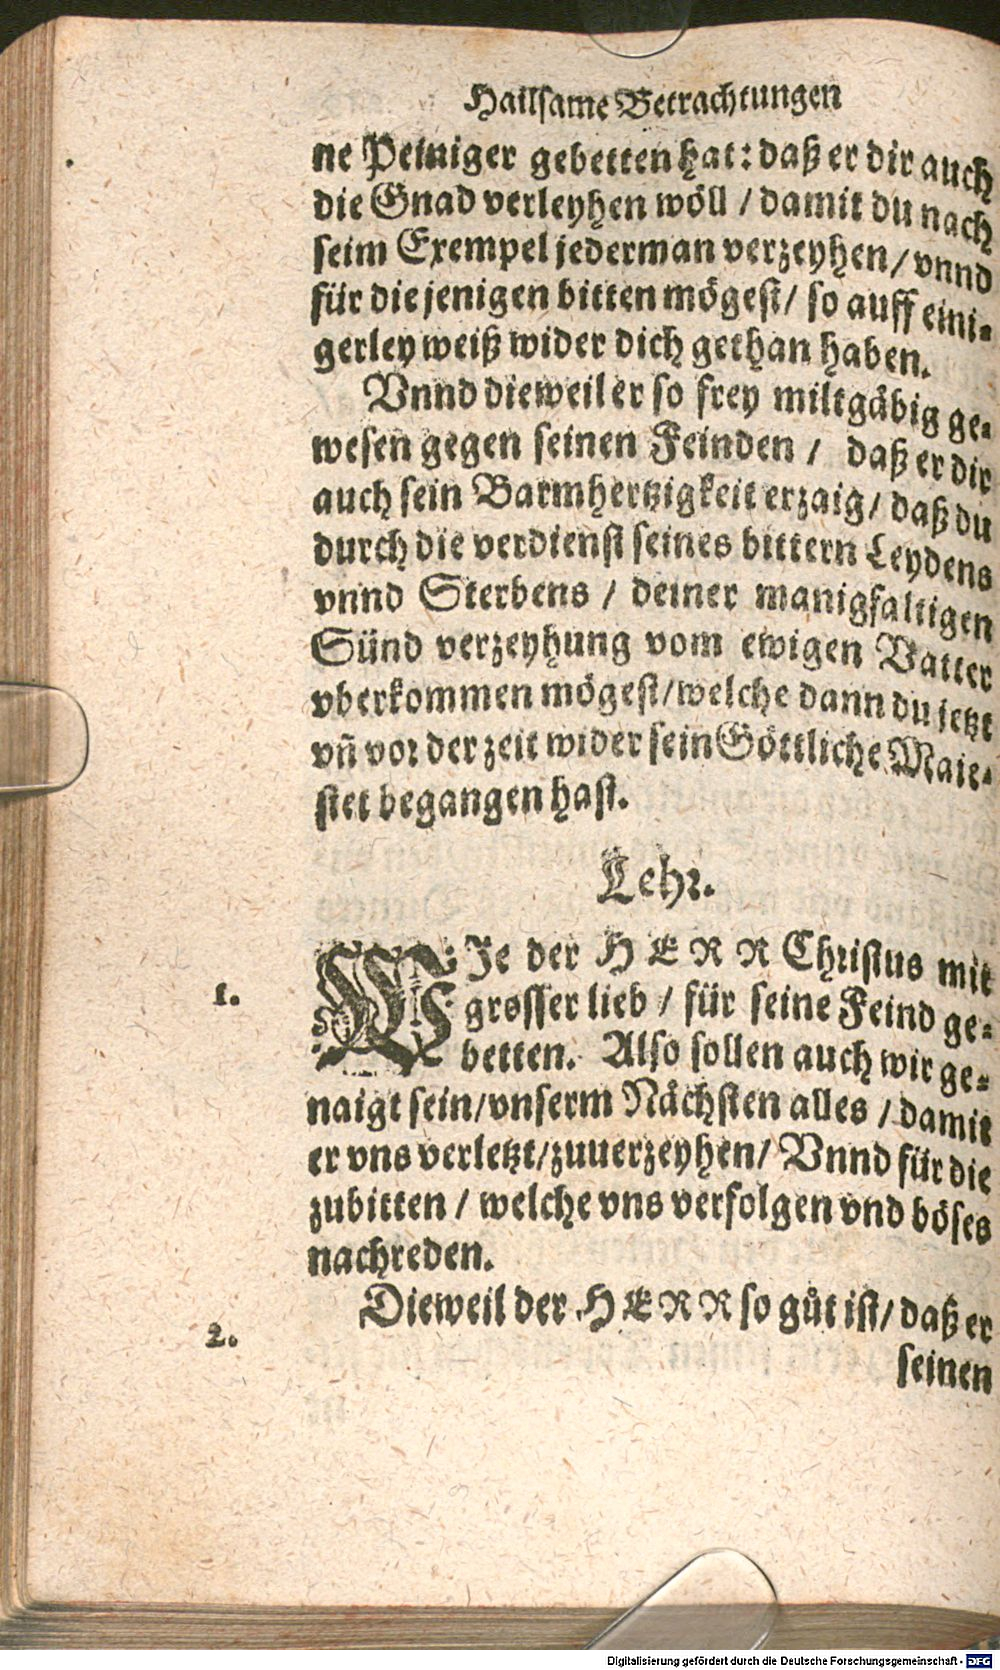 Hailsame Betrachtungen
ne Peiniger gebetten hat: daß er dir auch
die Gnad verleyhen wöll / damit du nach
seim Exempel jederman verzeyhen / vnnd
für die jenigen bitten mögest / so auff eini-
gerley weiß wider dich gethan haben.
Vnnd dieweil er so frey miltgäbig ge-
wesen gegen seinen Feinden / daß er dir
auch sein Barmhertzigkeit erzaig / daß du
durch die verdienst seines bittern Leydens
vnnd Sterbens / deiner manigfaltigen
Sünd verzeyhung vom ewigen Vatter
vberkommen mögest / welche dann du jetzt
vñ vor der zeit wider sein Göttliche Maie-
stet begangen hast.
Lehr.
1. WJe der HERR Christus mit
grosser lieb / für seine Feind ge-
betten. Also sollen auch wir ge-
naigt sein / vnserm Nächsten alles / damit
er vns verletzt / zuuerzeyhen / Vnnd für die
zubitten / welche vns verfolgen vnd böses
nachreden.
2. Dieweil der HERR so gůt ist / daß er
seinen
Digitalisierung gefördert durch die Deutsche Forschungsgemeinschaft - DFG